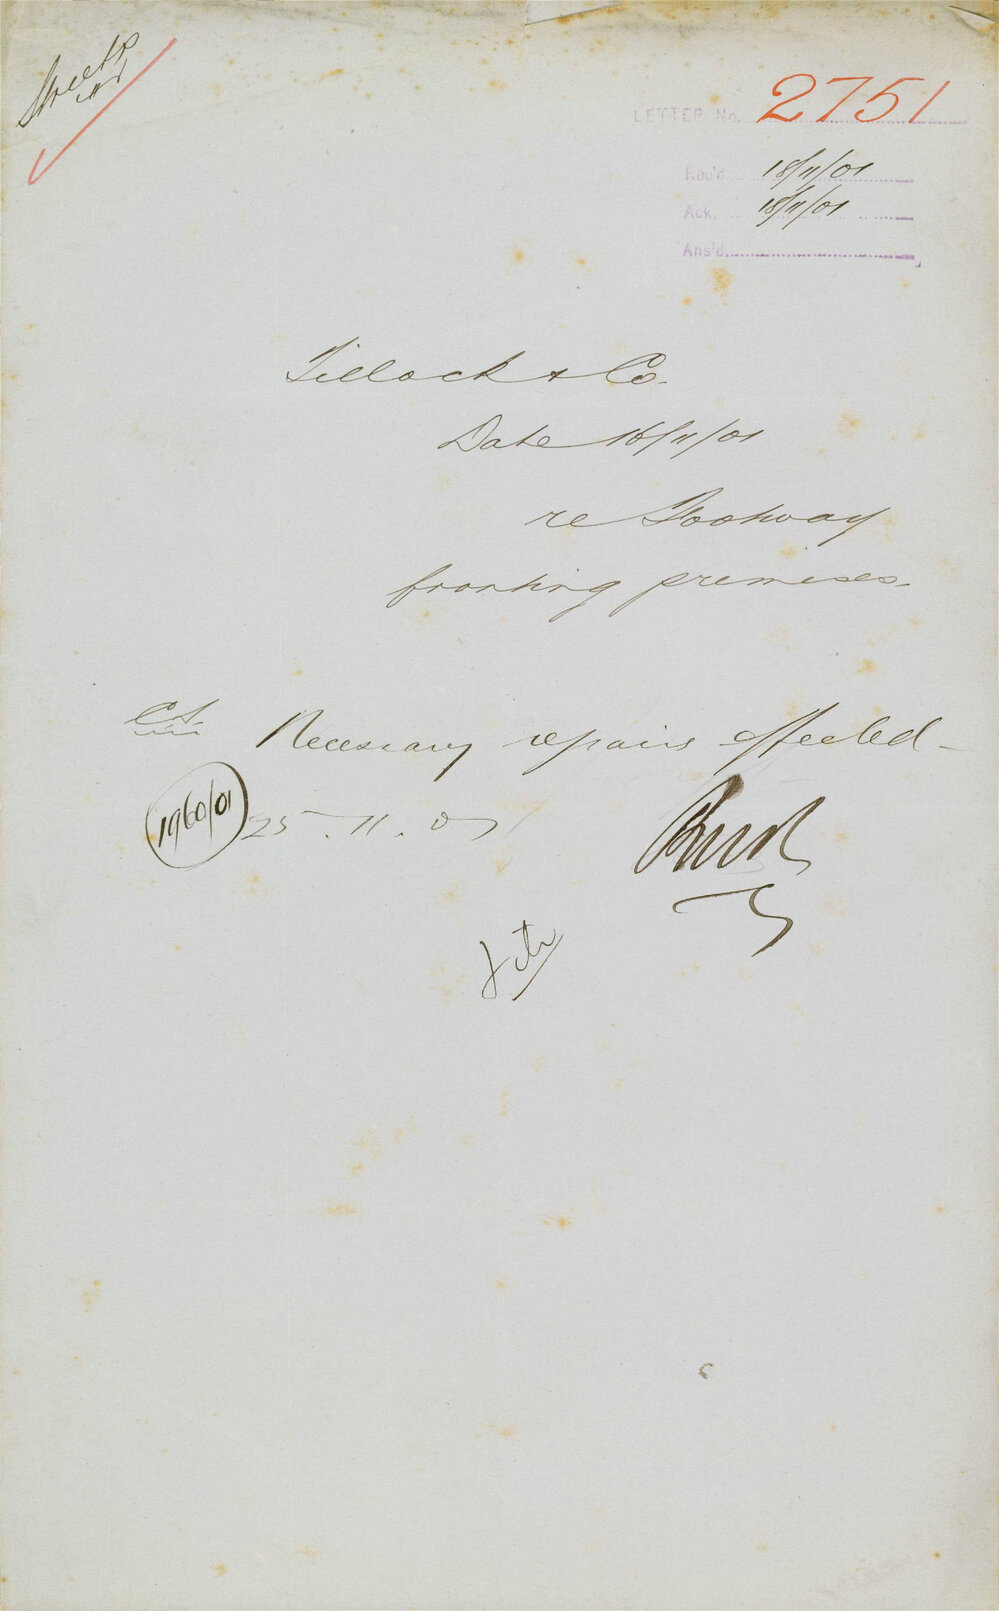 Streets
LETTER No. 2751
Rec'd. 18/11/01
Ack. 18/11/01
Ans'd.
Tillock & Co.
Date 16/11/01
re Footway
fronting premises.
C.S. Necessary repairs effected -
1960/01
25.11.01